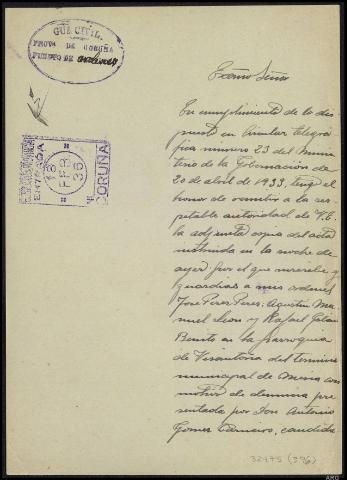 GUA. CIVIL.
PROVA DE CORUÑA
PUESTO DE
ENTRADA
18 FEB 36
CORUÑA
Excmo Señor
En cumplimiento de lo dis
puesto en circular telegrá
fica número 23 del Minis
terio de la Gobernación de
20 de abril de 1933, tengo el
honor de remitir a la res
petable autoridad de V.E.
la adjunta copia del acta
instruida en la noche de
ayer por el que suscribe y
guardias a mis ordenes
Jose Perez Perez, Agustin Ma
nuel Leon y Rafael
Benito en la parroquia
de Visantoña del termino
municipal de Mesia con
motivo de denuncia pre
sentada por Don Antonio
Gomez Carneiro, candida
32475 (396)
ARG